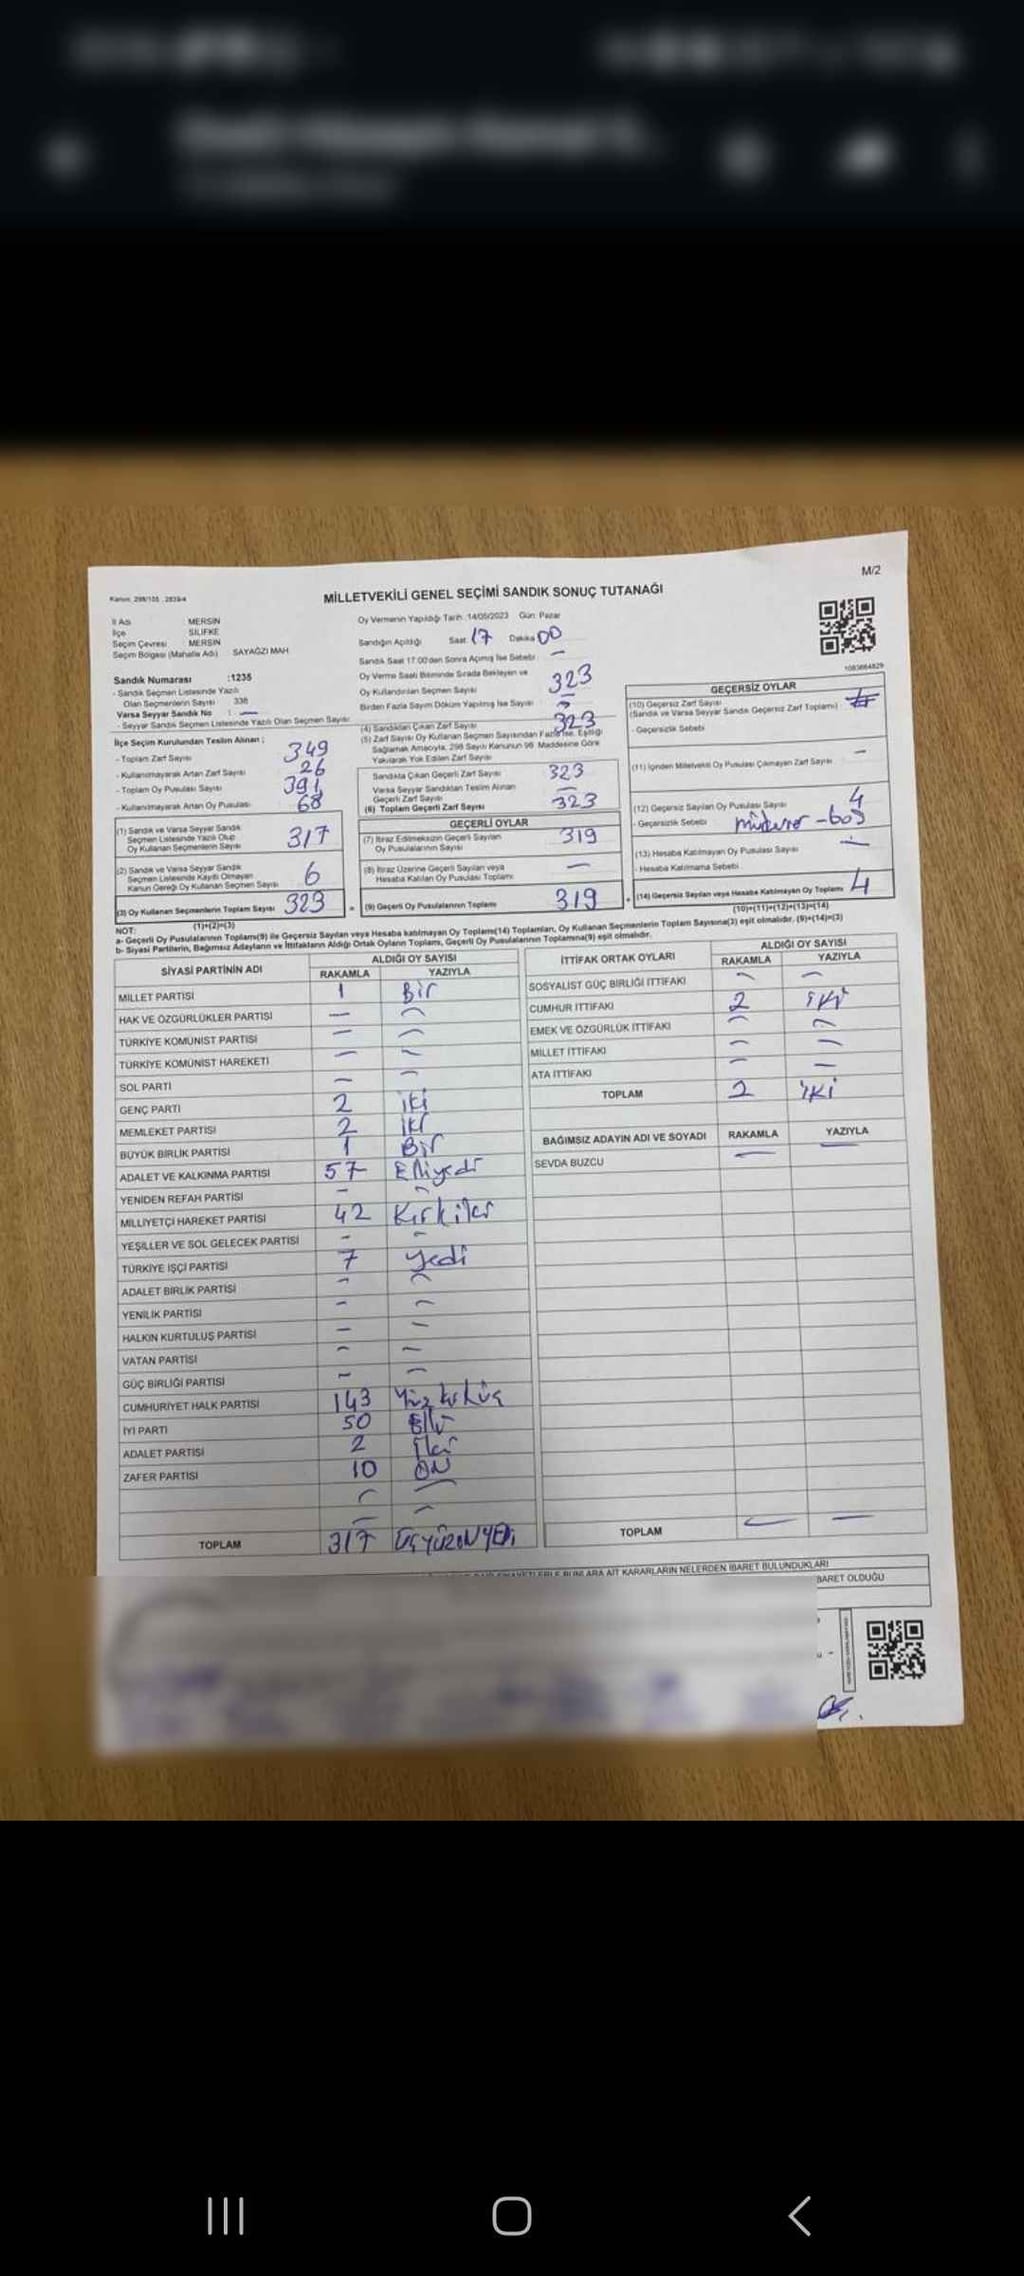 M/2
Kanun: 298/105 , 2839/4
MİLLETVEKİLİ GENEL SEÇİMİ SANDIK SONUÇ TUTANAĞI
İl Adı : MERSİN
İlçe : SİLİFKE
Seçim Çevresi : MERSİN
Seçim Bölgesi (Mahalle Adı) SAYAĞZI MAH.
Sandık Numarası :1235
- Sandık Seçmen Listesinde Yazılı
Olan Seçmenlerin Sayısı 338
Varsa Seyyar Sandık No : —
- Seyyar Sandık Seçmen Listesinde Yazılı Olan Seçmen Sayısı
Oy Vermenin Yapıldığı Tarih :14/05/2023 Gün: Pazar
Sandığın Açıldığı Saat 17 Dakika 00
Sandık Saat 17:00'den Sonra Açılmış İse Sebebi: —
Oy Verme Saati Bitiminde Sırada Bekleyen ve
Oy Kullandırılan Seçmen Sayısı 323
Birden Fazla Sayım Döküm Yapılmış İse Sayısı
1083664829
İlçe Seçim Kurulundan Teslim Alınan ;
- Toplam Zarf Sayısı 349
- Kullanılmayarak Artan Zarf Sayısı 26
- Toplam Oy Pusulası Sayısı 391
- Kullanılmayarak Artan Oy Pusulası 68
(1) Sandık ve Varsa Seyyar Sandık
Seçmen Listesinde Yazılı Olup
Oy Kullanan Seçmenlerin Sayısı 317
(2) Sandık ve Varsa Seyyar Sandık
Seçmen Listesinde Kayıtlı Olmayan
Kanun Gereği Oy Kullanan Seçmen Sayısı 6
(3) Oy Kullanan Seçmenlerin Toplam Sayısı 323
(1)+(2)=(3)
(4) Sandıktan Çıkan Zarf Sayısı 323
(5) Zarf Sayısı Oy Kullanan Seçmen Sayısından Fazla İse, Eşitliği
Sağlamak Amacıyla, 298 Sayılı Kanunun 98. Maddesine Göre
Yakılarak Yok Edilen Zarf Sayısı
Sandıkta Çıkan Geçerli Zarf Sayısı 323
Varsa Seyyar Sandıktan Teslim Alınan
Geçerli Zarf Sayısı —
(6) Toplam Geçerli Zarf Sayısı 323
GEÇERLİ OYLAR
(7) İtiraz Edilmeksizin Geçerli Sayılan
Oy Pusulalarının Sayısı 319
(8) İtiraz Üzerine Geçerli Sayılan veya
Hesaba Katılan Oy Pusulası Toplamı —
(9) Geçerli Oy Pusulalarının Toplamı 319
GEÇERSİZ OYLAR
(10) Geçersiz Zarf Sayısı
(Sandık ve Varsa Seyyar Sandık Geçersiz Zarf Toplamı)
- Geçersizlik Sebebi
(11) İçinden Milletvekili Oy Pusulası Çıkmayan Zarf Sayısı —
(12) Geçersiz Sayılan Oy Pusulası Sayısı 4
- Geçersizlik Sebebi -boş
(13) Hesaba Katılmayan Oy Pusulası Sayısı —
- Hesaba Katılmama Sebebi
(14) Geçersiz Sayılan veya Hesaba Katılmayan Oy Toplamı 4
(10)+(11)+(12)+(13)=(14)
NOT:
a- Geçerli Oy Pusulalarının Toplamı(9) ile Geçersiz Sayılan veya Hesaba katılmayan Oy Toplamı(14) Toplamları, Oy Kullanan Seçmenlerin Toplam Sayısına(3) eşit olmalıdır. (9)+(14)=(3)
b- Siyasi Partilerin, Bağımsız Adayların ve İttifakların Aldığı Ortak Oyların Toplamı, Geçerli Oy Pusulalarının Toplamına(9) eşit olmalıdır.
SİYASİ PARTİNİN ADI ALDIĞI OY SAYISI
RAKAMLA YAZIYLA
MİLLET PARTİSİ 1 Bir
HAK VE ÖZGÜRLÜKLER PARTİSİ — —
TÜRKİYE KOMÜNİST PARTİSİ — —
TÜRKİYE KOMÜNİST HAREKETİ — —
SOL PARTİ — —
GENÇ PARTİ 2 iki
MEMLEKET PARTİSİ 2 iki
BÜYÜK BİRLİK PARTİSİ 1 Bir
ADALET VE KALKINMA PARTİSİ 57 Elliyedi
YENİDEN REFAH PARTİSİ — —
MİLLİYETÇİ HAREKET PARTİSİ 42 Kırkiki
YEŞİLLER VE SOL GELECEK PARTİSİ — —
TÜRKİYE İŞÇİ PARTİSİ 7 yedi
ADALET BİRLİK PARTİSİ — —
YENİLİK PARTİSİ — —
HALKIN KURTULUŞ PARTİSİ — —
VATAN PARTİSİ — —
GÜÇ BİRLİĞİ PARTİSİ — —
CUMHURİYET HALK PARTİSİ 143 Yüz kırküç
İYİ PARTİ 50 Elli
ADALET PARTİSİ 2 iki
ZAFER PARTİSİ 10 ON
TOPLAM 317 ÜÇYÜZONYEDİ
İTTİFAK ORTAK OYLARI ALDIĞI OY SAYISI
RAKAMLA YAZIYLA
SOSYALİST GÜÇ BİRLİĞİ İTTİFAKI — —
CUMHUR İTTİFAKI 2 iki
EMEK VE ÖZGÜRLÜK İTTİFAKI — —
MİLLET İTTİFAKI — —
ATA İTTİFAKI — —
TOPLAM 2 iki
BAĞIMSIZ ADAYIN ADI VE SOYADI RAKAMLA YAZIYLA
SEVDA BUZCU — —
TOPLAM — —
BUNLARA AİT KARARLARIN NELERDEN İBARET BULUNDUKLARI
BARET OLDUĞU